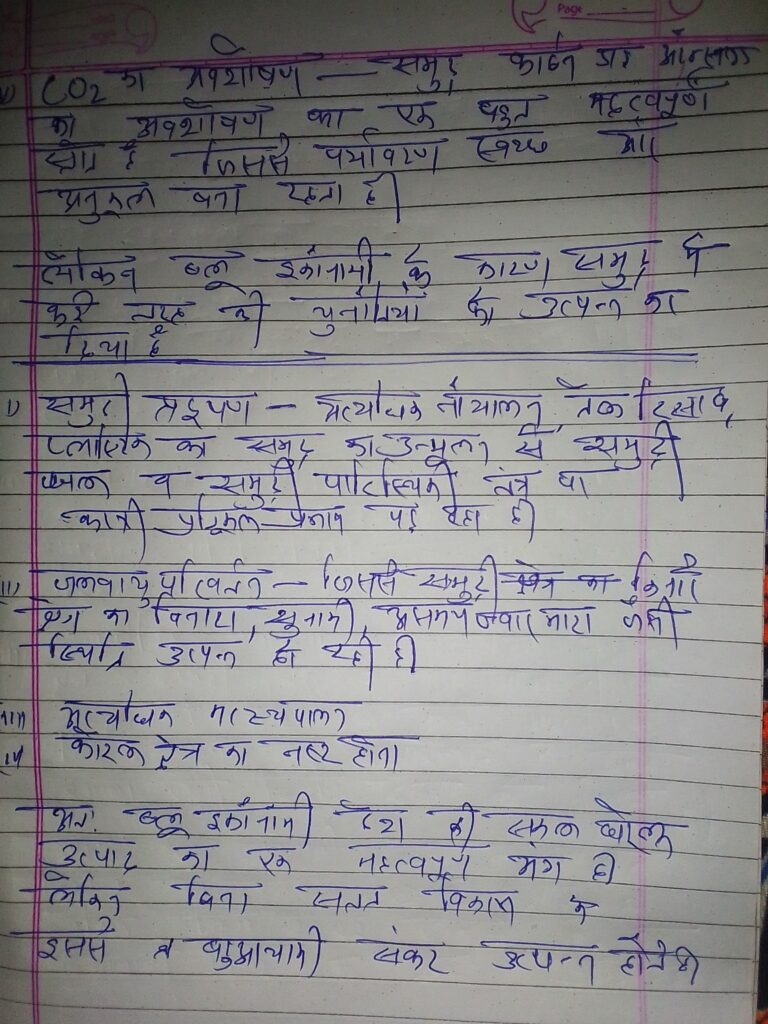 Page
CO2 का अवशोषण — समुद्र कार्बन डाई ऑक्साइड
का अवशोषण का एक बहुत महत्वपूर्ण
स्रोत है जिससे पर्यावरण स्वच्छ और
अनुकूल बना रहता है।
लेकिन ब्लू इकोनामी के कारण समुद्र में
कई तरह की चुनौतियों को उत्पन्न कर
दिया है
I) समुद्री प्रदूषण — अत्याधिक नौचालन, तेल रिसाव,
प्लास्टिक का समुद्र का उन्मूलन से समुद्री
जल व समुद्री पारिस्थिकी तंत्र पर
काफी प्रतिकूल प्रभाव पड़ रहा है।
II) जलवायु परिवर्तन — जिससे समुद्री किनारे
क्षेत्र का विनाश, सुनामी, असमय ज्वार भाटा जैसी
स्थिति उत्पन्न हो रही है।
III) अत्याधिक मत्स्यपालन
IV) कोरल क्षेत्र का नष्ट होना
अतः ब्लू इकोनामी देश की सकल घरेलू
उत्पाद का एक महत्वपूर्ण अंग है।
लेकिन बिना सतत विकास के
इससे बहुआयामी संकट उत्पन्न होते है।